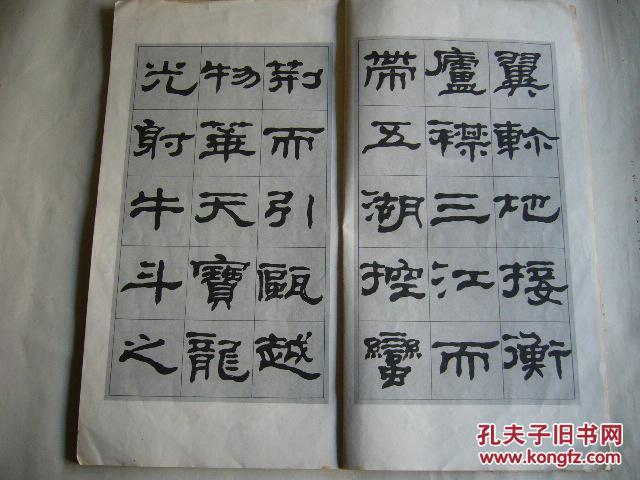 翼軫地接衡
廬襟三江而
帶五湖控蠻
荊而引甌越
物華天寶龍
光射牛斗之
孔夫子旧书网
www.kongfz.com